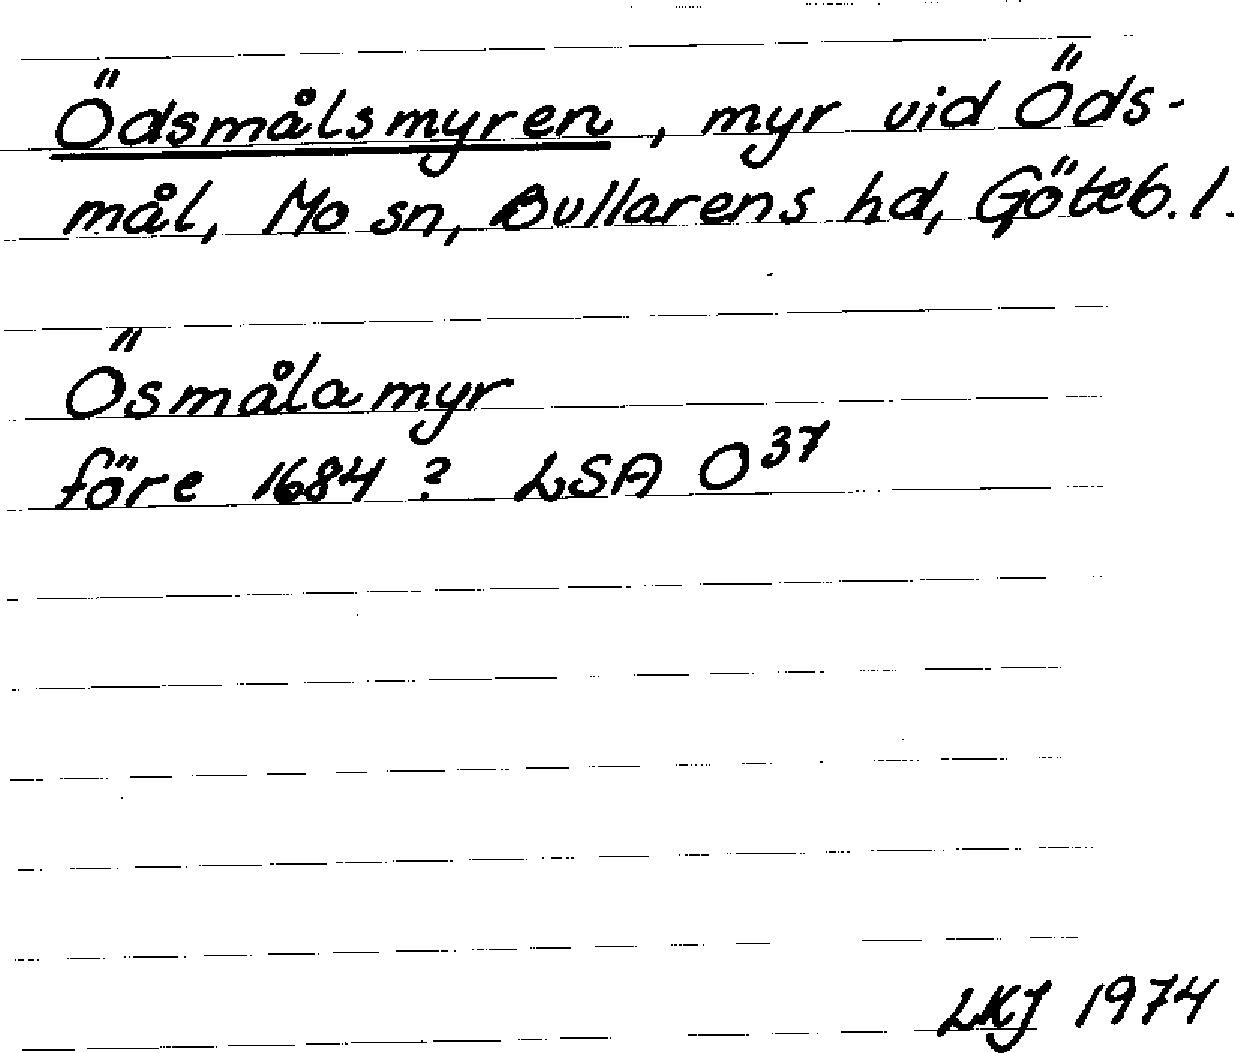 Ödsmålsmyren, myr vid Öds-
mål, Mo sn, Bullarens hd, Göteb. l.
Ösmåla myr
före 1684 ? LSA O37
LKJ 1974